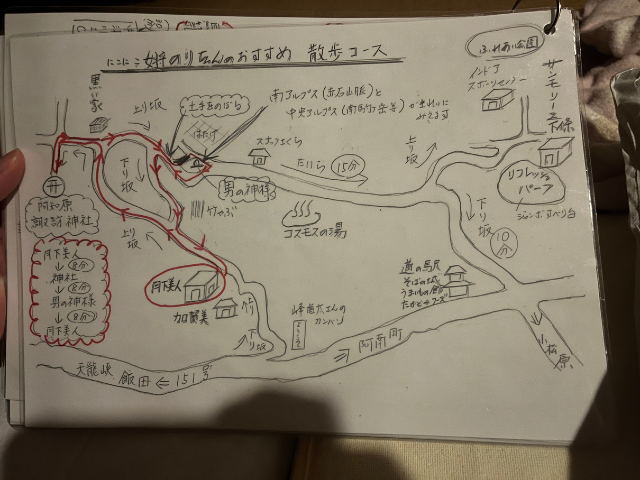 にこにこ女将のりちゃんのおすすめ 散歩コース
ふれあい公園
黒い家
上り坂
土手道のばら
南アルプス(赤石山脈)と
中央アルプス
みえます
インドア
スポーツセンター
サンモリーユ下條
はたけ
スカップさくら
下り坂
たいら 15分
上り坂
男の神様
リフレッシュ
パーク
ジャンボすべり台
阿知原
諏訪神社
竹やぶ
コスモスの湯
下り坂
10分
上り坂
月下美人
8分
神社
8分
男の神様
8分
月下美人
月下美人
加賀美
道の駅
そばの城
うまいもの館
峰竜太さんの
カンバン
下り坂
阿南町
小松原
天龍峡
飯田 ← 151号